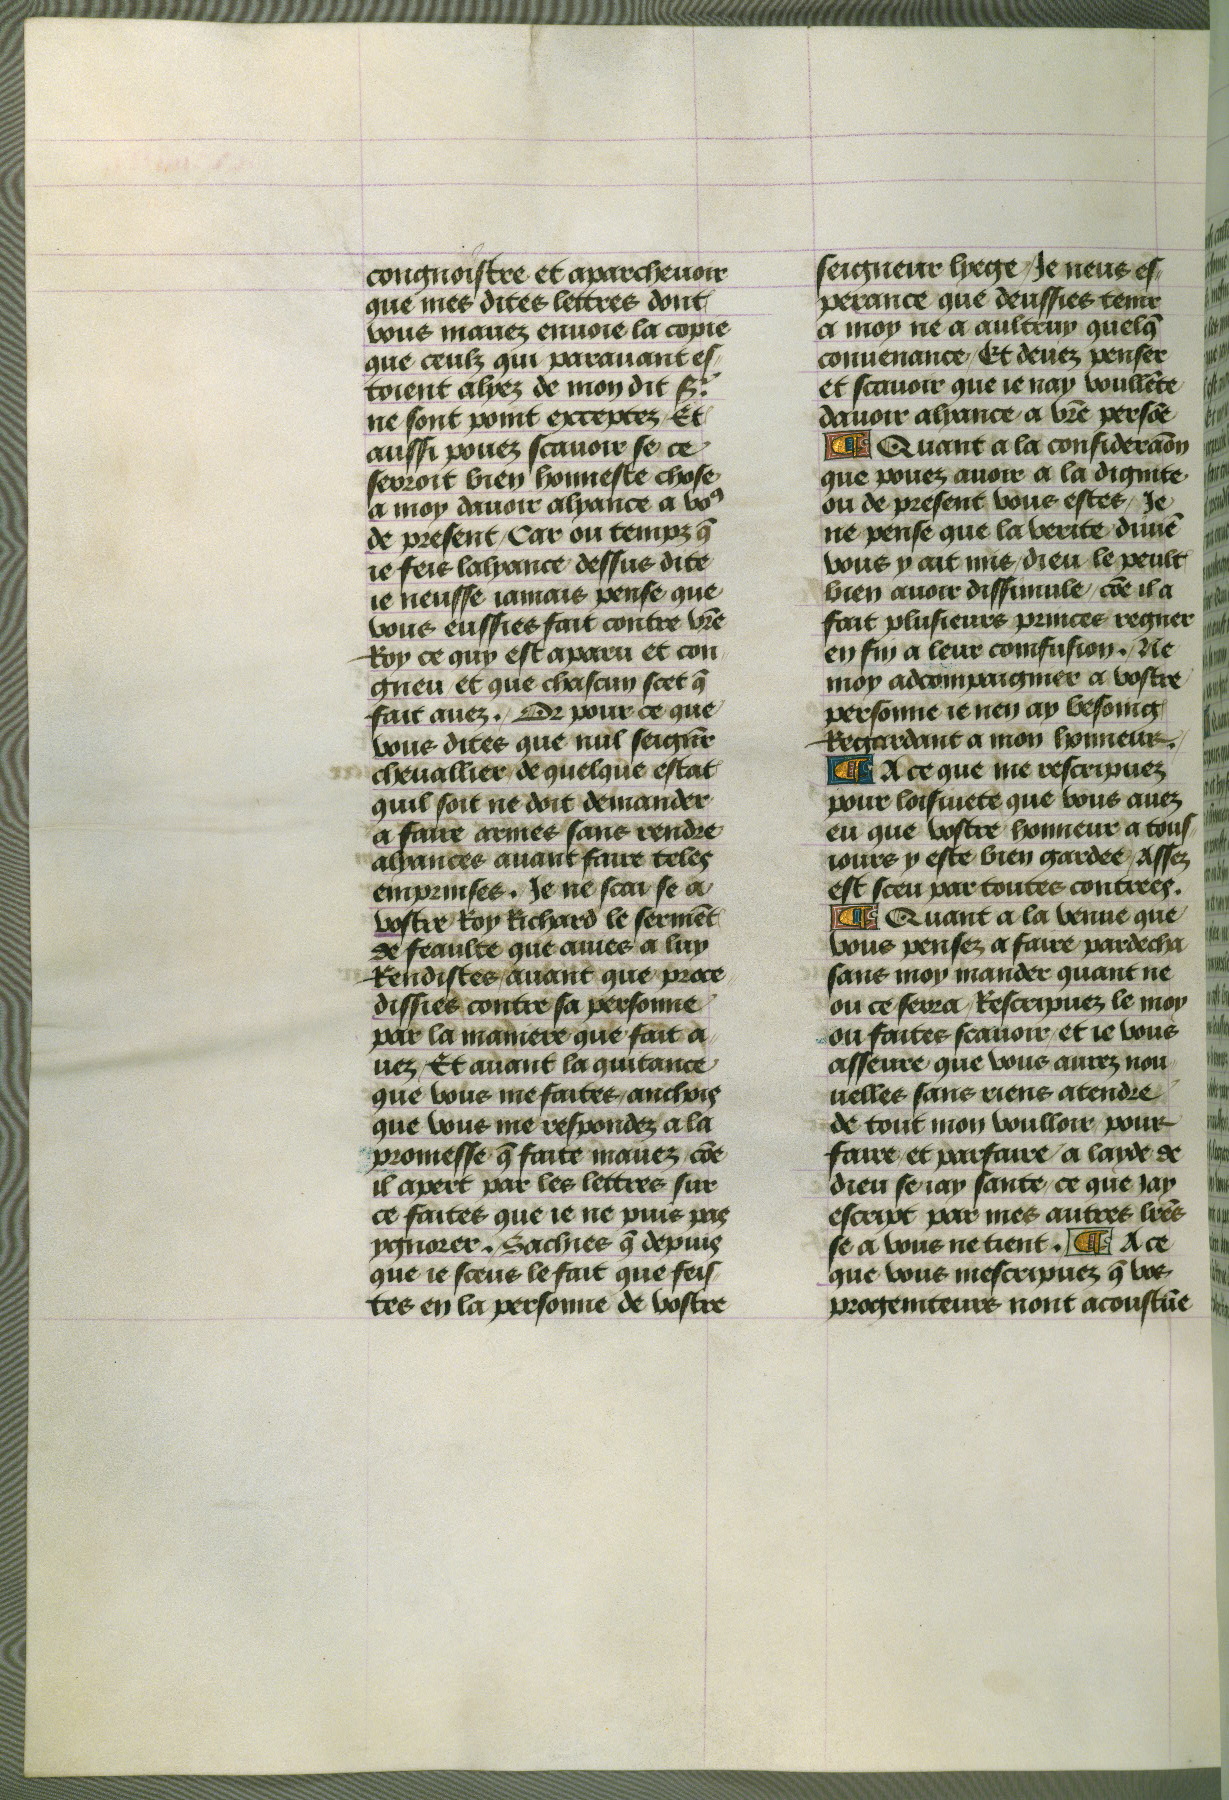 congnoistre et aparchevoir
que mes dites lettres dont
vous mauez enuoie la copie
que ceulz qui parauant es/
toient alyez de mon dit sr.
ne sont point exceptez / Et
aussi pouez scauoir se ce
seroit bien honneste chose
a moy dauoir alyance a voꝰ
de present / Car ou tempz q̄
ie feis lalyance dessus dite
ie neusse iamais pense que
vous eussies fait contre vr̄e
Roy ce quy est aparu et con
gneu / et que chascun scet q̄
fait auez. / Or pour ce que
vous dites que nul seignr̄
cheuallier de quelque estat
quil soit ne doit demander
a faire armes sans rendre
alyances auant faire teles
emprinses. Je ne scai se a
vostre Roy Richard le sermēt
de feaulte que auies a luy
Rendistes / auant que proce
dissies contre sa personne
par la maniere que fait a
uez / Et auant la quitance
que vous me faites / anchois
que vous me respondez a la
promesse q̄ faite mauez / cōe
il apert par les lettres sur
ce faites que ie ne puis pas
ygnorer. Sachies q̄ depuis
que ie sceus le fait que feis/
tes en la personne de vostre
seigneur lyege / Je neus es/
perance que deussies tenir
a moy ne a aultruy quelq̄
conuenance / Et deuez penser
et scauoir que ie nay voullēte
dauoir alyance a vr̄e persōe
¶ Quant a la consideraōn
que pouez auoir a la dignite
ou de present vous estes / Je
ne pense que la verite diuiē
vous y ait mis / dieu le peult
bien auoir dissimule / cōe il a
fait plusieurs princes regner
en fin a leur comfusion. Ne
moy adcompaignier a vostre
personne ie nen ay besoing
Regardant a mon honneur.
¶ A ce que me rescripuez
pour loisiuete que vous auez
eu que vostre honneur a tous/
iours y este bien gardee / Assez
est sceu par toutes contrees.
¶ Quant a la venue que
vous pensez a faire pardecha
sans moy mander quant ne
ou ce serra / Rescripuez le moy
ou faites scauoir / et ie vous
asseure que vous aurez nou
uelles sans riens atendre
de tout mon voulloir pour
faire et parfaire / a layde de
dieu se iay sante / ce que Jay
escript par mes autres lr̄es
se a vous ne tient. ¶ A ce
que vous mescripuez q̄ vos
progeniteurs nont acoustūe